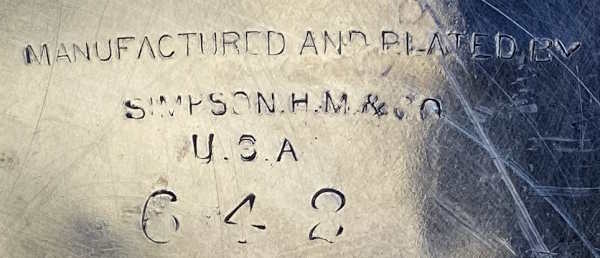 MANUFACTURED AND PLATED BY
SIMPSON.H.M.& CO
U.S.A
642